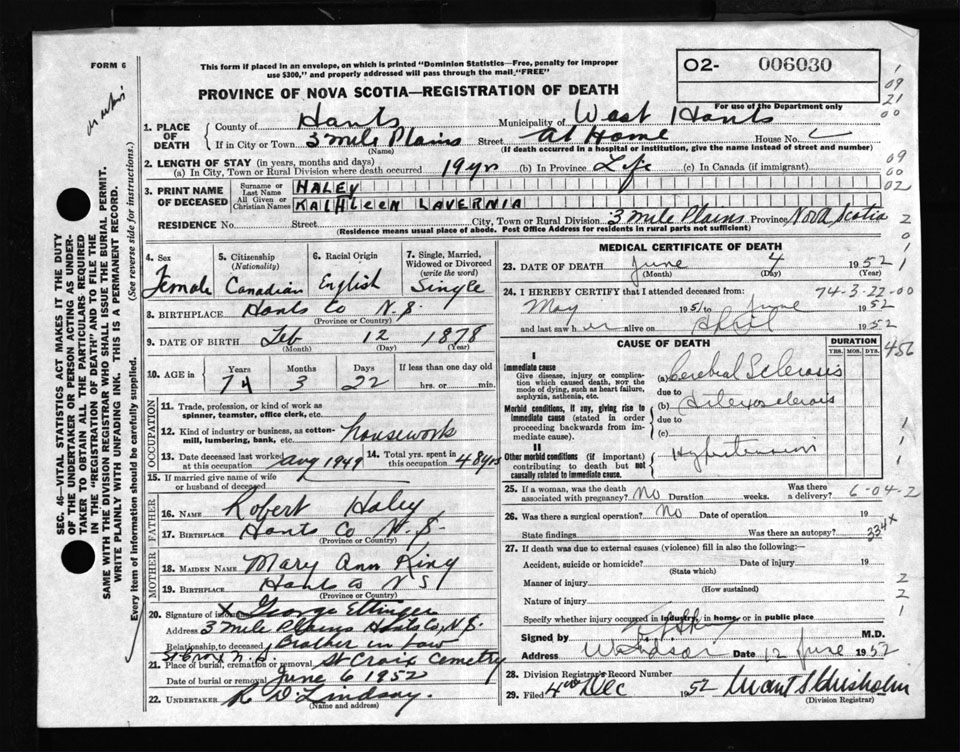 FORM 6
This form if placed in an envelope, on which is printed "Dominion Statistics—Free, penalty for improper
use $300," and properly addressed will pass through the mail "FREE"
O2- 006030
PROVINCE OF NOVA SCOTIA—REGISTRATION OF DEATH
For use of the Department only
1. PLACE OF DEATH
County of Hants Municipality of West Hants
If in City or Town 3 mile Plains Street At Home House No.
(Name) (If death occurred in a hospital or institution, give the name instead of street and number)
2. LENGTH OF STAY (in years, months and days)
(a) In City, Town or Rural Division where death occurred 19 yrs (b) In Province Life (c) In Canada (if immigrant)
3. PRINT NAME OF DECEASED
Surname or Last Name HALEY
All Given or Christian Names KATHLEEN LAVERNIA
RESIDENCE No. Street City, Town or Rural Division 3 mile Plains Province Nova Scotia
(Residence means usual place of abode. Post Office Address for residents in rural parts not sufficient)
4. Sex Female
5. Citizenship (Nationality) Canadian
6. Racial Origin English
7. Single, Married, Widowed or Divorced (write the word) Single
8. BIRTHPLACE Hants Co N.S.
(Province or Country)
9. DATE OF BIRTH Feb 12 1878
(Month) (Day) (Year)
10. AGE in Years Months Days If less than one day old
74 3 22 hrs. or min.
OCCUPATION
11. Trade, profession, or kind of work as spinner, teamster, office clerk, etc.
12. Kind of industry or business, as cotton-mill, lumbering, bank, etc. housework
13. Date deceased last worked at this occupation Aug 1949
14. Total yrs. spent in this occupation 48 yrs
15. If married give name of wife or husband of deceased
FATHER
16. NAME Robert Haley
17. BIRTHPLACE Hants Co N.S.
(Province or Country)
MOTHER
18. MAIDEN NAME Mary Ann King
19. BIRTHPLACE Hants Co N S
(Province or Country)
20. Signature of informant X George Ettinger
Address 3 mile Plains Hants Co, N.S.
Relationship to deceased Brother in Law
St Croix N.S.
21. Place of burial, cremation or removal St Croix Cemetry
Date of burial or removal June 6 1952
22. UNDERTAKER R D Lindsay.
(Name and address)
MEDICAL CERTIFICATE OF DEATH
23. DATE OF DEATH June 4 1952
(Month) (Day) (Year)
24. I HEREBY CERTIFY that I attended deceased from: 74-3-22-00
May 1951 to June 1952
and last saw her alive on April 1952
CAUSE OF DEATH
DURATION
YRS. MOS. DYS.
456
I
Immediate cause
Give disease, injury or complication which caused death, not the mode of dying, such as heart failure, asphyxia, asthenia, etc.
(a) Cerebral Sclerosis
due to
Morbid conditions, if any, giving rise to immediate cause (stated in order proceeding backwards from immediate cause).
(b) Arteriosclerosis
due to
(c)
II
Other morbid conditions (if important) contributing to death but not causally related to immediate cause.
Hypertension
25. If a woman, was the death associated with pregnancy? No Duration weeks. Was there a delivery? 6-04-2
26. Was there a surgical operation? No Date of operation 19
State findings Was there an autopsy?
334x
27. If death was due to external causes (violence) fill in also the following:—
Accident, suicide or homicide? Date of injury 19
(State which)
Manner of injury
(How sustained)
Nature of injury
Specify whether injury occurred in industry, in home, or in public place
Signed by M.D.
Address Windsor Date 12 June 1952
28. Division Registrar's Record Number
29. Filed 4th Dec 1952 Chisholm
(Division Registrar)
SEC. 46—VITAL STATISTICS ACT MAKES IT THE DUTY
OF THE UNDERTAKER OR PERSON ACTING AS UNDER-
TAKER TO OBTAIN ALL THE PARTICULARS REQUIRED
IN THE "REGISTRATION OF DEATH" AND TO FILE THE
SAME WITH THE DIVISION REGISTRAR WHO SHALL ISSUE THE BURIAL PERMIT.
WRITE PLAINLY WITH UNFADING INK. THIS IS A PERMANENT RECORD.
Every item of information should be carefully supplied. (See reverse side for instructions.)